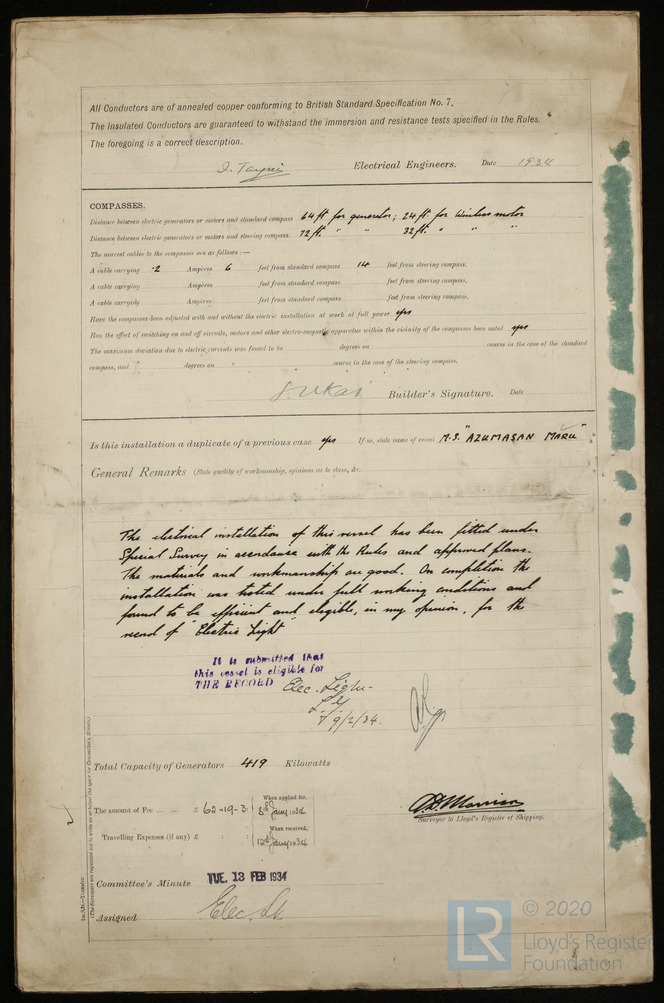 All Conductors are of annealed copper conforming to British Standard Specification No. 7.
The Insulated Conductors are guaranteed to withstand the immersion and resistance tests specified in the Rules.
The foregoing is a correct description.
Electrical Engineers. Date 1934
COMPASSES.
Distance between electric generators or motors and standard compass 64 ft. for generator; 24 ft. for Wireless motor
Distance between electric generators or motors and steering compass 72 ft. " " 32 ft. " " "
The nearest cables to the compasses are as follows:—
A cable carrying .2 Ampères 6 feet from standard compass 14 feet from steering compass.
A cable carrying Ampères feet from standard compass feet from steering compass.
A cable carrying Ampères feet from standard compass feet from steering compass.
Have the compasses been adjusted with and without the electric installation at work at full power yes
Has the effect of switching on and off circuits, motors and other electro-magnetic apparatus within the vicinity of the compasses been noted yes
The maximum deviation due to electric currents was found to be degrees on course in the case of the standard
compass, and degrees on course in the case of the steering compass.
Builder's Signature. Date
Is this installation a duplicate of a previous case yes If so, state name of vessel M.S. "AZUMASAN MARU"
General Remarks (State quality of workmanship, opinions as to class, &c.
The electrical installation of this vessel has been fitted under
Special Survey in accordance with the Rules and approved plans.
The materials and workmanship are good. On completion the
installation was tested under full working conditions and
found to be efficient and eligible, in my opinion, for the
record of "Electric Light"
It is submitted that
this vessel is eligible for
THE RECORD Elec. Light
9/2/34.
Total Capacity of Generators 419 Kilowatts
The amount of Fee ... ... £ 62-19-3 When applied for, 8th Jany 1934
Travelling Expenses (if any) £ When received, 12th Jany 1934
Surveyor to Lloyd's Register of Shipping.
Committee's Minute TUE. 13 FEB 1934
Assigned Elec. Lt.
LR © 2020
Lloyd's Register
Foundation